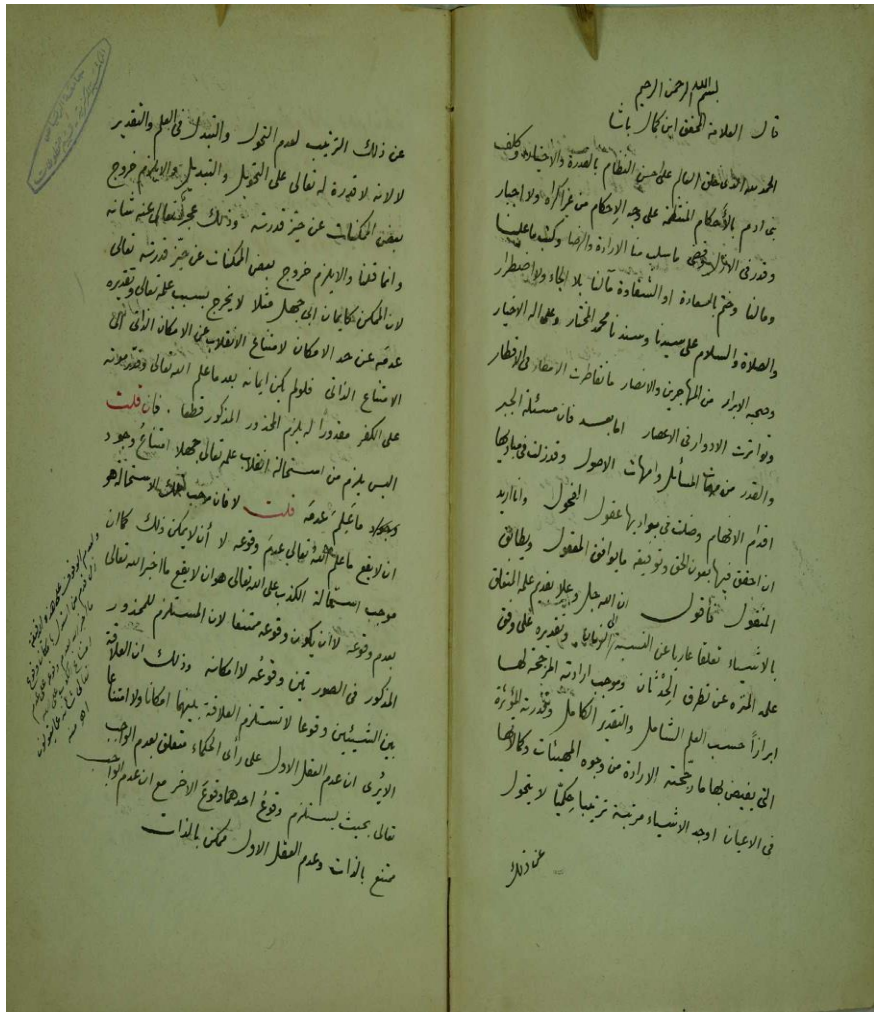 بسم الله الرحمن الرحيم
قال العلامة المحقق ابن كمال باشا
الحمد لله الذي خلق العالم على حسن النظام بالقدرة والاختيار وكلف
بنى ادم بالأحكام المنتظمة على وجه الإحكام من غير اكراه ولا اجبار
وقدر في الازل وقضى ما سلب منا الارادة والرضا وكتب ما علينا
ومالنا وختم بالسعادة او الشقاوة مآلنا بلا الجاء ولا اضطرار
والصلاة والسلام على سيدنا وسندنا محمد المختار وعلى اله الاخيار
وصحبه الابرار من المهاجرين والانصار ما تقاطرت الامطار في الاقطار
وتواترت الادوار في الاعصار اما بعد فان مسئلة الجبر
والقدر من مهمات المسائل وامهات الاصول وقد زلت في مباديها
اقدام الافهام وضلت في بواديها عقول الفحول وانا اريد
ان احقق فيها بعون الحق وتوفيقه ما يوافق المعقول ويطابق
المنقول فأقول ان الله جل وعلا بقدم علمه المتعلق
بالاشياء تعلقا عاريا عن النسبة الى الزمان وتقديره على وفق
علمه المنزه عن تطرق الحدثان وموجب ارادته المرجحة لها
ابرازا حسب العلم الشامل والتقدير الكامل وقدرته المؤثرة
التي يفيض بها ما رجحته الارادة من وجوه المهيئات وكمالاتها
في الاعيان اوجد الاشياء مرتبة ترتيبا حكميا لا يتحول
عن ذلك
عن ذلك الترتيب لعدم التحول والتبدل في العلم والتقدير
لا لانه لا قدرة له تعالى على التحويل والتبديل والا يلزم خروج
بعض الممكنات عن حيز قدرته وذلك عجز تعالى عنه شانه
وانما قلنا والا يلزم خروج بعض الممكنات عن حيز قدرته تعالى
لان الممكن كايمان ابى جهل مثلا لا يخرج بسبب علمه تعالى وتقديره
عدمه عن حد الامكان لامتناع الانقلاب عن الامكان الذاتى الى
الامتناع الذاتى فلو لم يكن ايمانه بعد ما علم الله تعالى وقدر موته
على الكفر مقدورا له يلزم المحذور المذكور قطعا . فان قلت
اليس يلزم من استحالة انقلاب علمه تعالى جهلا امتناع وجود
ما علم عدمه قلت لا فان موجب تلك الاستحالة هو
ان لا يقع ما علم الله تعالى عدم وقوعه لا أن لا يمكن ذلك كما ان
موجب استحالة الكذب على الله تعالى هو ان لا يقع ما اخبر الله تعالى
بعدم وقوعه لا ان يكون وقوعه ممتنعا لان المستلزم للمحذور
المذكور في الصورتين وقوعه لا امكانه وذلك ان العلاقة
بين الشيئين وقوعا لا تستلزم العلاقة بينهما امكانا ولا امتناعا
الا يرى ان عدم العقل الاول على رأى الحكماء متعلق بعدم الواجب
تعالى بحيث يستلزم وقوع احدهما وقوع الاخر مع ان عدم الواجب
ممتنع بالذات وعدم العقل الاول ممكن بالذات